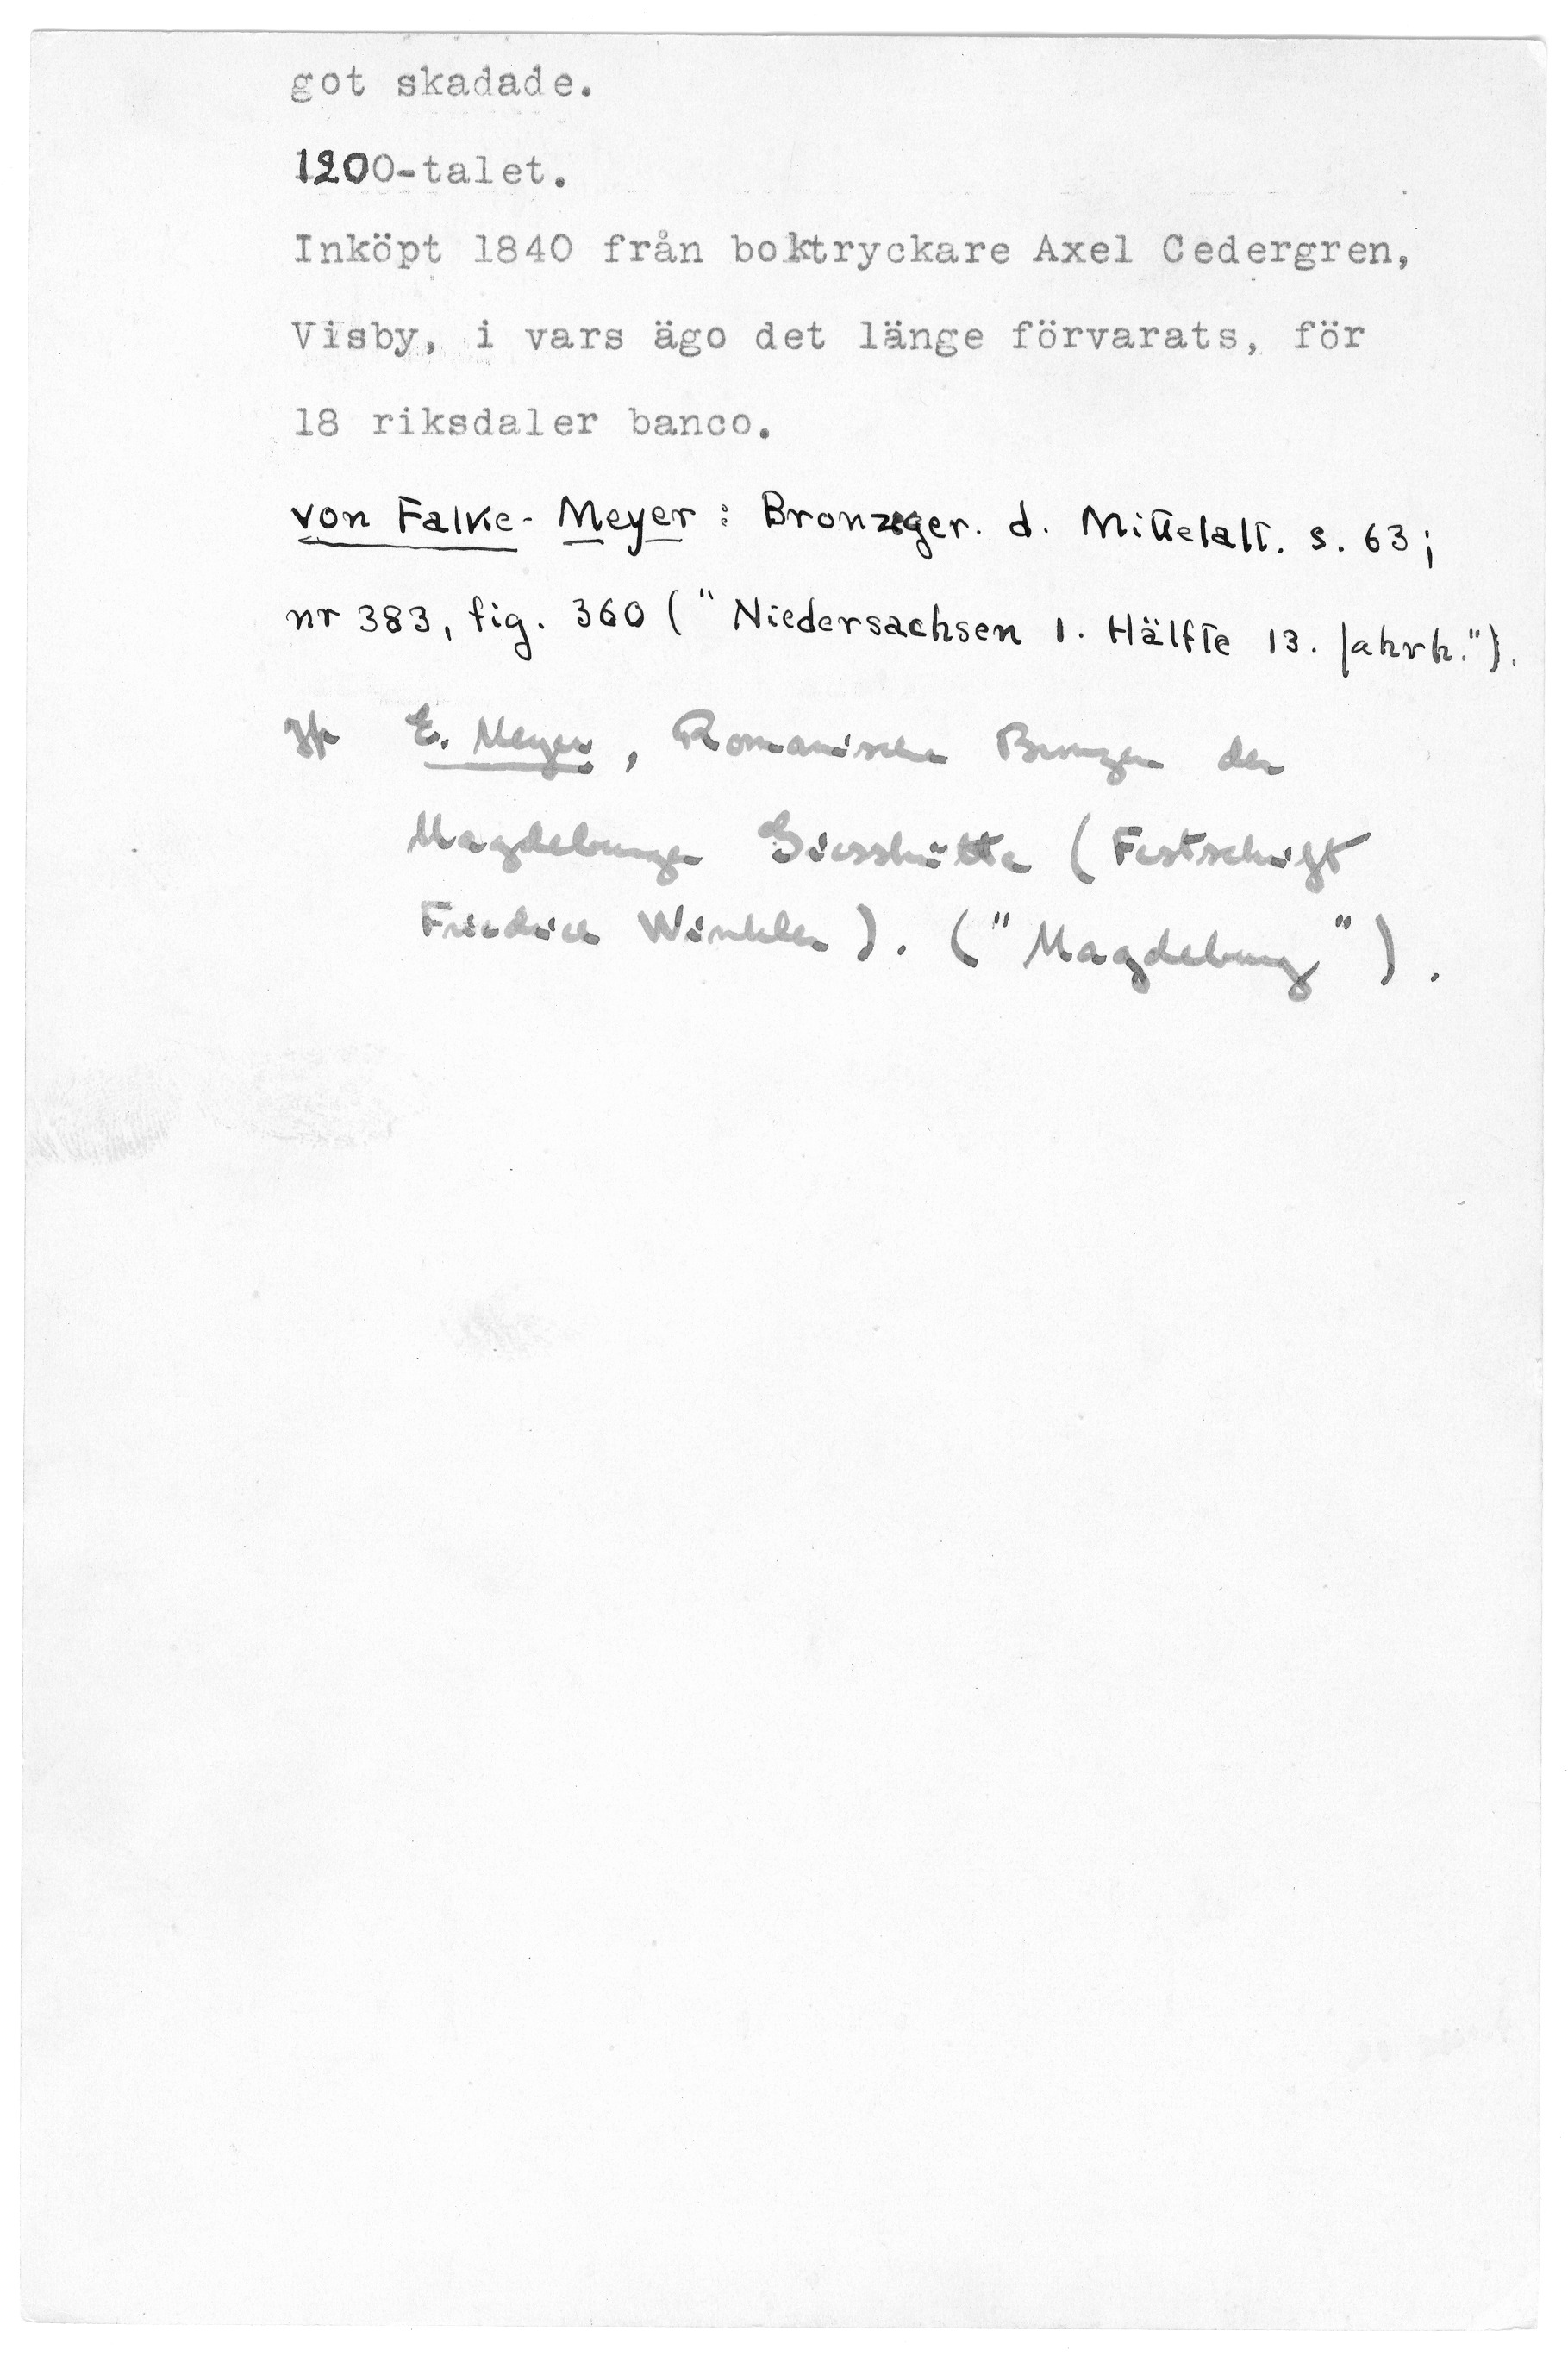 got skadade.
1200-talet.
Inköpt 1840 från boktryckare Axel Cedergren,
Visby, i vars ägo det länge förvarats, för
18 riksdaler banco.
von Falke-Meyer: Bronzeger. d. Mittelalt. s. 63;
nr 383, fig. 360 ("Niedersachsen 1. Hälfte 13. Jahrh.").
Jfr E. Meyer, Romanische Bronzen der
Magdeburger Giesshütte (Festschrift
Friedrich Winkler). ("Magdeburg").